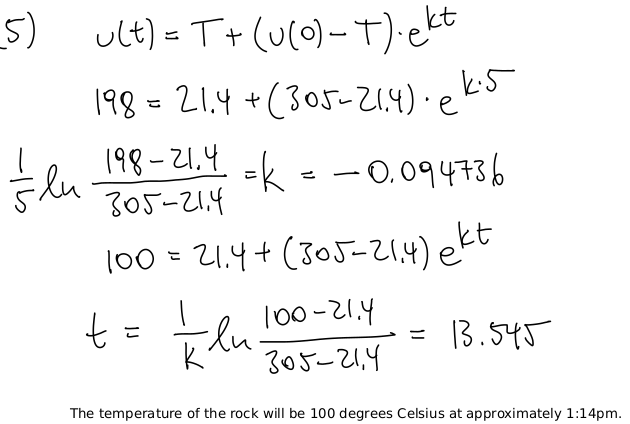 5) u(t) = T + (u(0) - T) · e^{kt}
198 = 21.4 + (305 - 21.4) · e^{k·5}
\frac{1}{5} ln \frac{198 - 21.4}{305 - 21.4} = k = -0.094736
100 = 21.4 + (305 - 21.4) e^{kt}
t = \frac{1}{k} ln \frac{100 - 21.4}{305 - 21.4} = 13.545
The temperature of the rock will be 100 degrees Celsius at approximately 1:14pm.